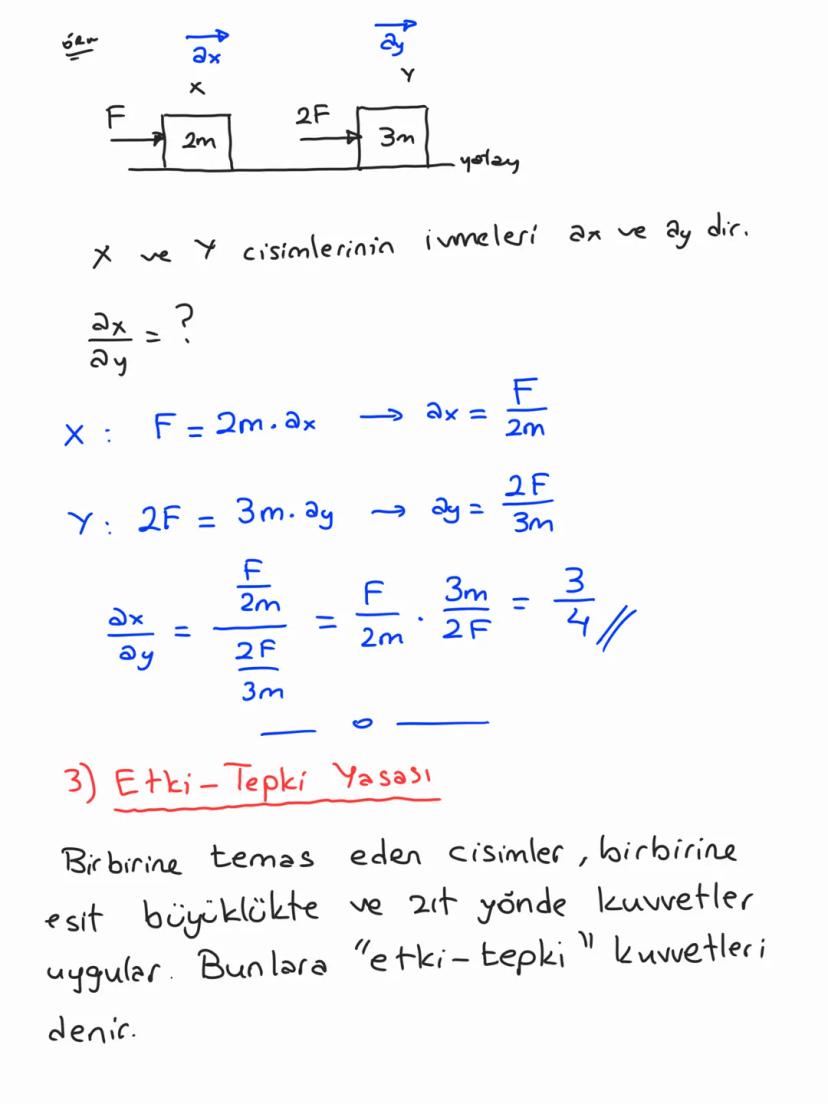 örn
ax ay
X Y
F 2m 2F 3m
yatay
X ve Y cisimlerinin ivmeleri ax ve ay dir.
ax/ay = ?
X: F = 2m.ax → ax = F/2m
Y: 2F = 3m.ay → ay = 2F/3m
ax/ay = (F/2m)/(2F/3m) = F/2m . 3m/2F = 3/4 //
3) Etki-Tepki Yasası
Birbirine temas eden cisimler, birbirine
eşit büyüklükte ve zıt yönde kuvvetler
uygular. Bunlara "etki-tepki" kuvvetleri
denir.